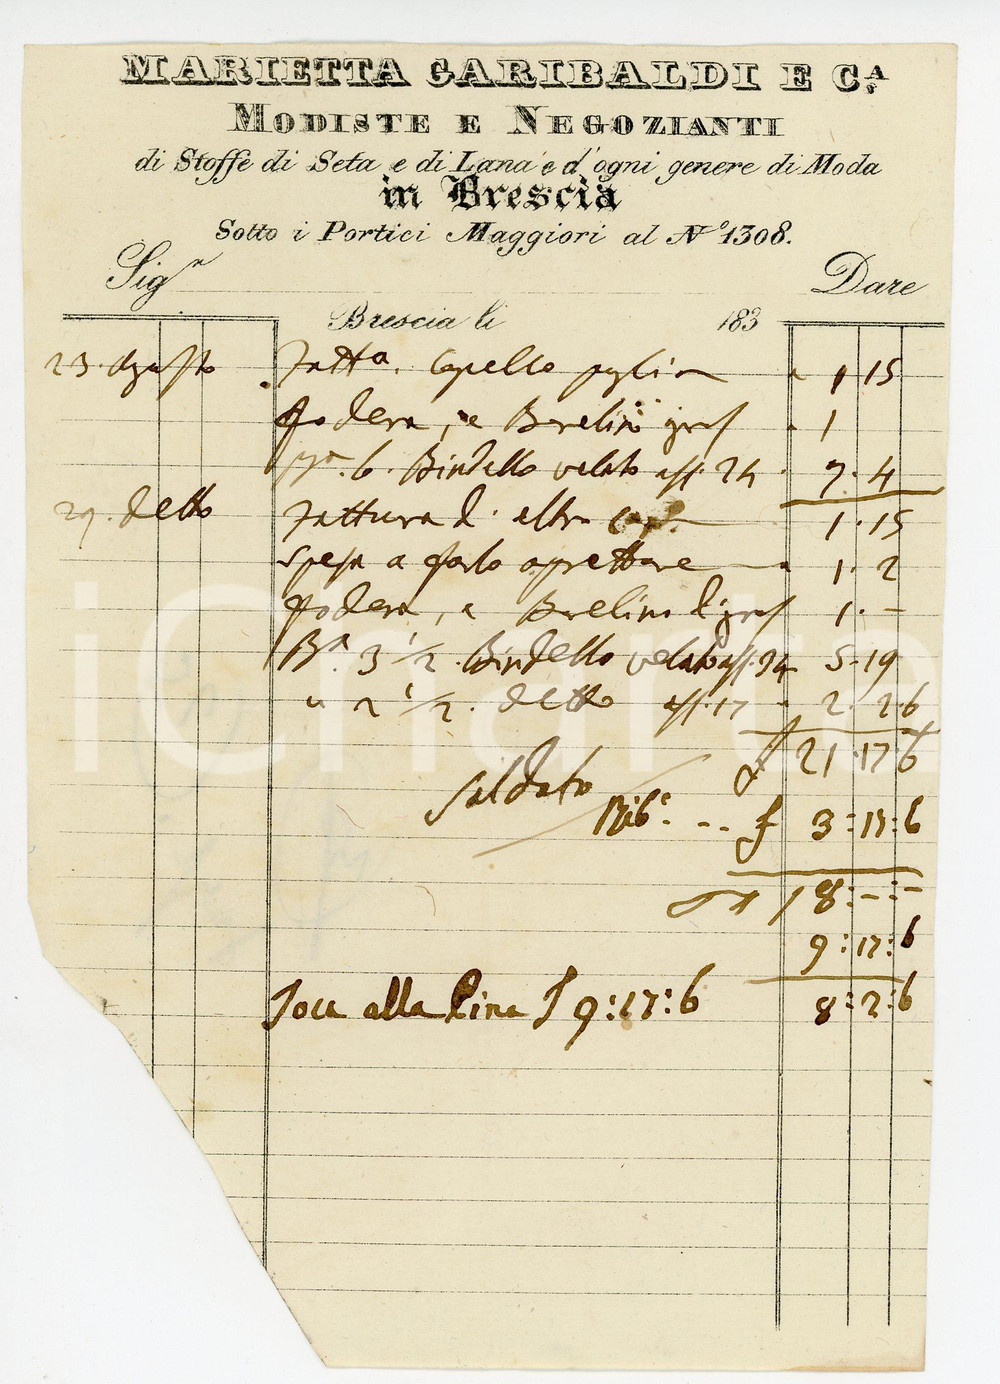 MARIETTA GARIBALDI E C.A
MODISTE E NEGOZIANTI
di Stoffe di Seta e di Lana e d'ogni genere di Moda
in Brescia
Sotto i Portici Maggiori al No 1308.
Sigr Dare
Brescia li 183
23. Agosto Fatta. Capello paglia 1 15
fodera, e Barelino 1
Ba. 6. Bindello velato aff. 24 7. 4
29. detto Fattura d'altro 1. 15
Spesa a farlo aprettare 1. 2
fodera, e Barelino di 1. -
Ba. 3 1/2. Bindello velato aff. 34 5. 19
" 2 1/2. detto aff. 17 2. 2. 6
£ 21. 17. 6
Saldato
Ribe. - - £ 3:17:6
18:-:-
9:17:6
Toca alla Pina £ 9:17:6 8:2:6
iCharta